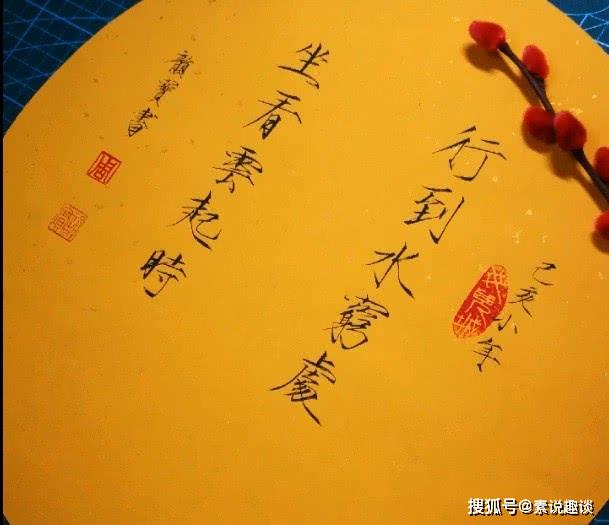 己亥小年
行到水窮處
坐看雲起時
寶書
周
搜狐号@素说趣谈